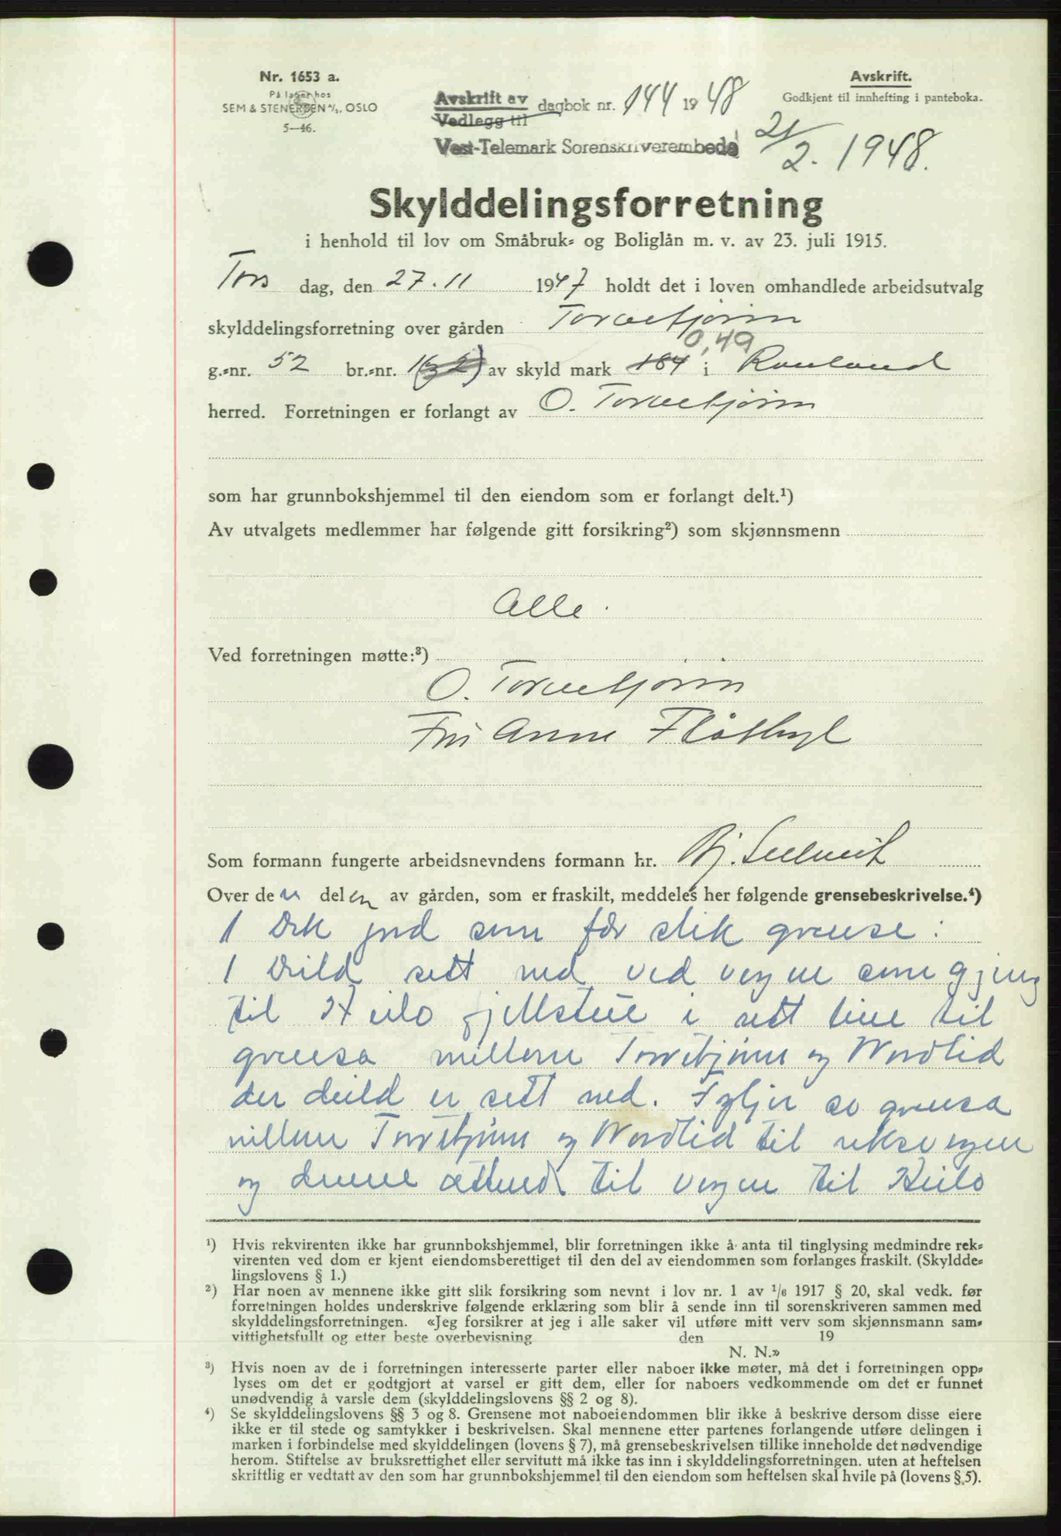 Nr. 1653 a.
På lager hos
SEM & STENERSEN A/S, OSLO
5—46.
Avskrift av
Vedlegg til
dagbok nr. 144 1948
Vest-Telemark Sorenskriverembede
21/2. 1948.
Avskrift.
Godkjent til innhefting i panteboka.
Skylddelingsforretning
i henhold til lov om Småbruk- og Boliglån m. v. av 23. juli 1915.
Tors dag, den 27.11 1947 holdt det i loven omhandlede arbeidsutvalg
skylddelingsforretning over gården Torvetjørn
0,49
g.-nr. 52 br.-nr. 1 av skyld mark i Rauland
herred. Forretningen er forlangt av O. Torvetjørn
som har grunnbokshjemmel til den eiendom som er forlangt delt.¹)
Av utvalgets medlemmer har følgende gitt forsikring²) som skjønnsmenn
Alle.
Ved forretningen møtte:³)
O. Torvetjørn
Anne Flåthyl
Som formann fungerte arbeidsnevndens formann hr. Bj.
Over den delen av gården, som er fraskilt, meddeles her følgende grensebeskrivelse.⁴)
jord som får slik grense:
1 deild sett ned ved vegen som gjeng
til fjellstue i rett line til
grensa millom Torvetjønn og
der deild er sett ned. Fylgjer so grensa
millom Torvetjønn og til riksvegen
og denne attende til vegen til
¹) Hvis rekvirenten ikke har grunnbokshjemmel, blir forretningen ikke å anta til tinglysing medmindre rek-
virenten ved dom er kjent eiendomsberettiget til den del av eiendommen som forlanges fraskilt. (Skyldde-
lingslovens § 1.)
²) Har noen av mennene ikke gitt slik forsikring som nevnt i lov nr. 1 av ¹/₆ 1917 § 20, skal vedk. før
forretningen holdes underskrive følgende erklæring som blir å sende inn til sorenskriveren sammen med
skylddelingsforretningen. «Jeg forsikrer at jeg i alle saker vil utføre mitt verv som skjønnsmann sam-
vittighetsfullt og etter beste overbevisning den 19
N. N.»
³) Hvis noen av de i forretningen interesserte parter eller naboer ikke møter, må det i forretningen opp-
lyses om det er godtgjort at varsel er gitt dem, eller for naboers vedkommende om det er funnet
unødvendig å varsle dem (skylddelingslovens §§ 2 og 8).
⁴) Se skylddelingslovens §§ 3 og 8. Grensene mot naboeiendommen blir ikke å beskrive dersom disse eiere
ikke er til stede og samtykker i beskrivelsen. Skal mennene etter partenes forlangende utføre delingen i
marken i forbindelse med skylddelingen (lovens § 7), må grensebeskrivelsen tillike inneholde det nødvendige
herom. Stiftelse av bruksrettighet eller servitutt må ikke tas inn i skylddelingsforretningen. uten at heftelsen
skriftlig er vedtatt av den som har grunnbokshjemmel til den eiendom som heftelsen skal hvile på (lovens § 5).